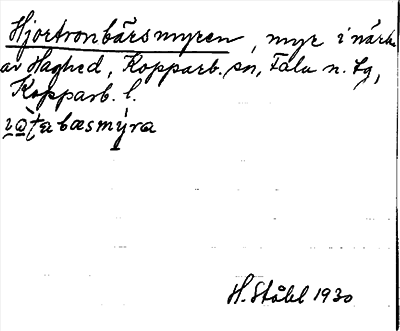 Hjortronbärsmyren, myr i närh.
av Haghed, Kopparb. sn, Falu n. tg,
Kopparb. l.
H. Ståhl 1930